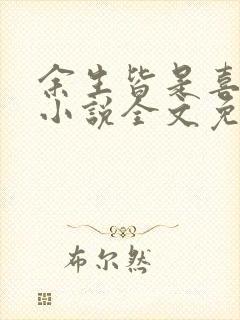 余生皆是喜
小说全文免
布尔然